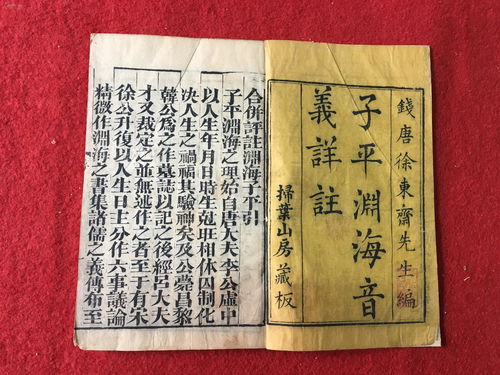 錢唐徐東齋先生編
子平淵海音
義詳註
掃葉山房藏板
合併評註淵海子平引
子平淵海之理始自唐大夫李公虛中
以人生年月日時生尅旺相休囚制化
决人生之禍福其驗神矣及公薨昌黎
韓公爲之作墓誌以記之後經呂大夫
才又裁定之並無述作之者至于有宋
徐公升復以人生日主分作六事議論
精微作淵海之書集諸儒之義傳布至